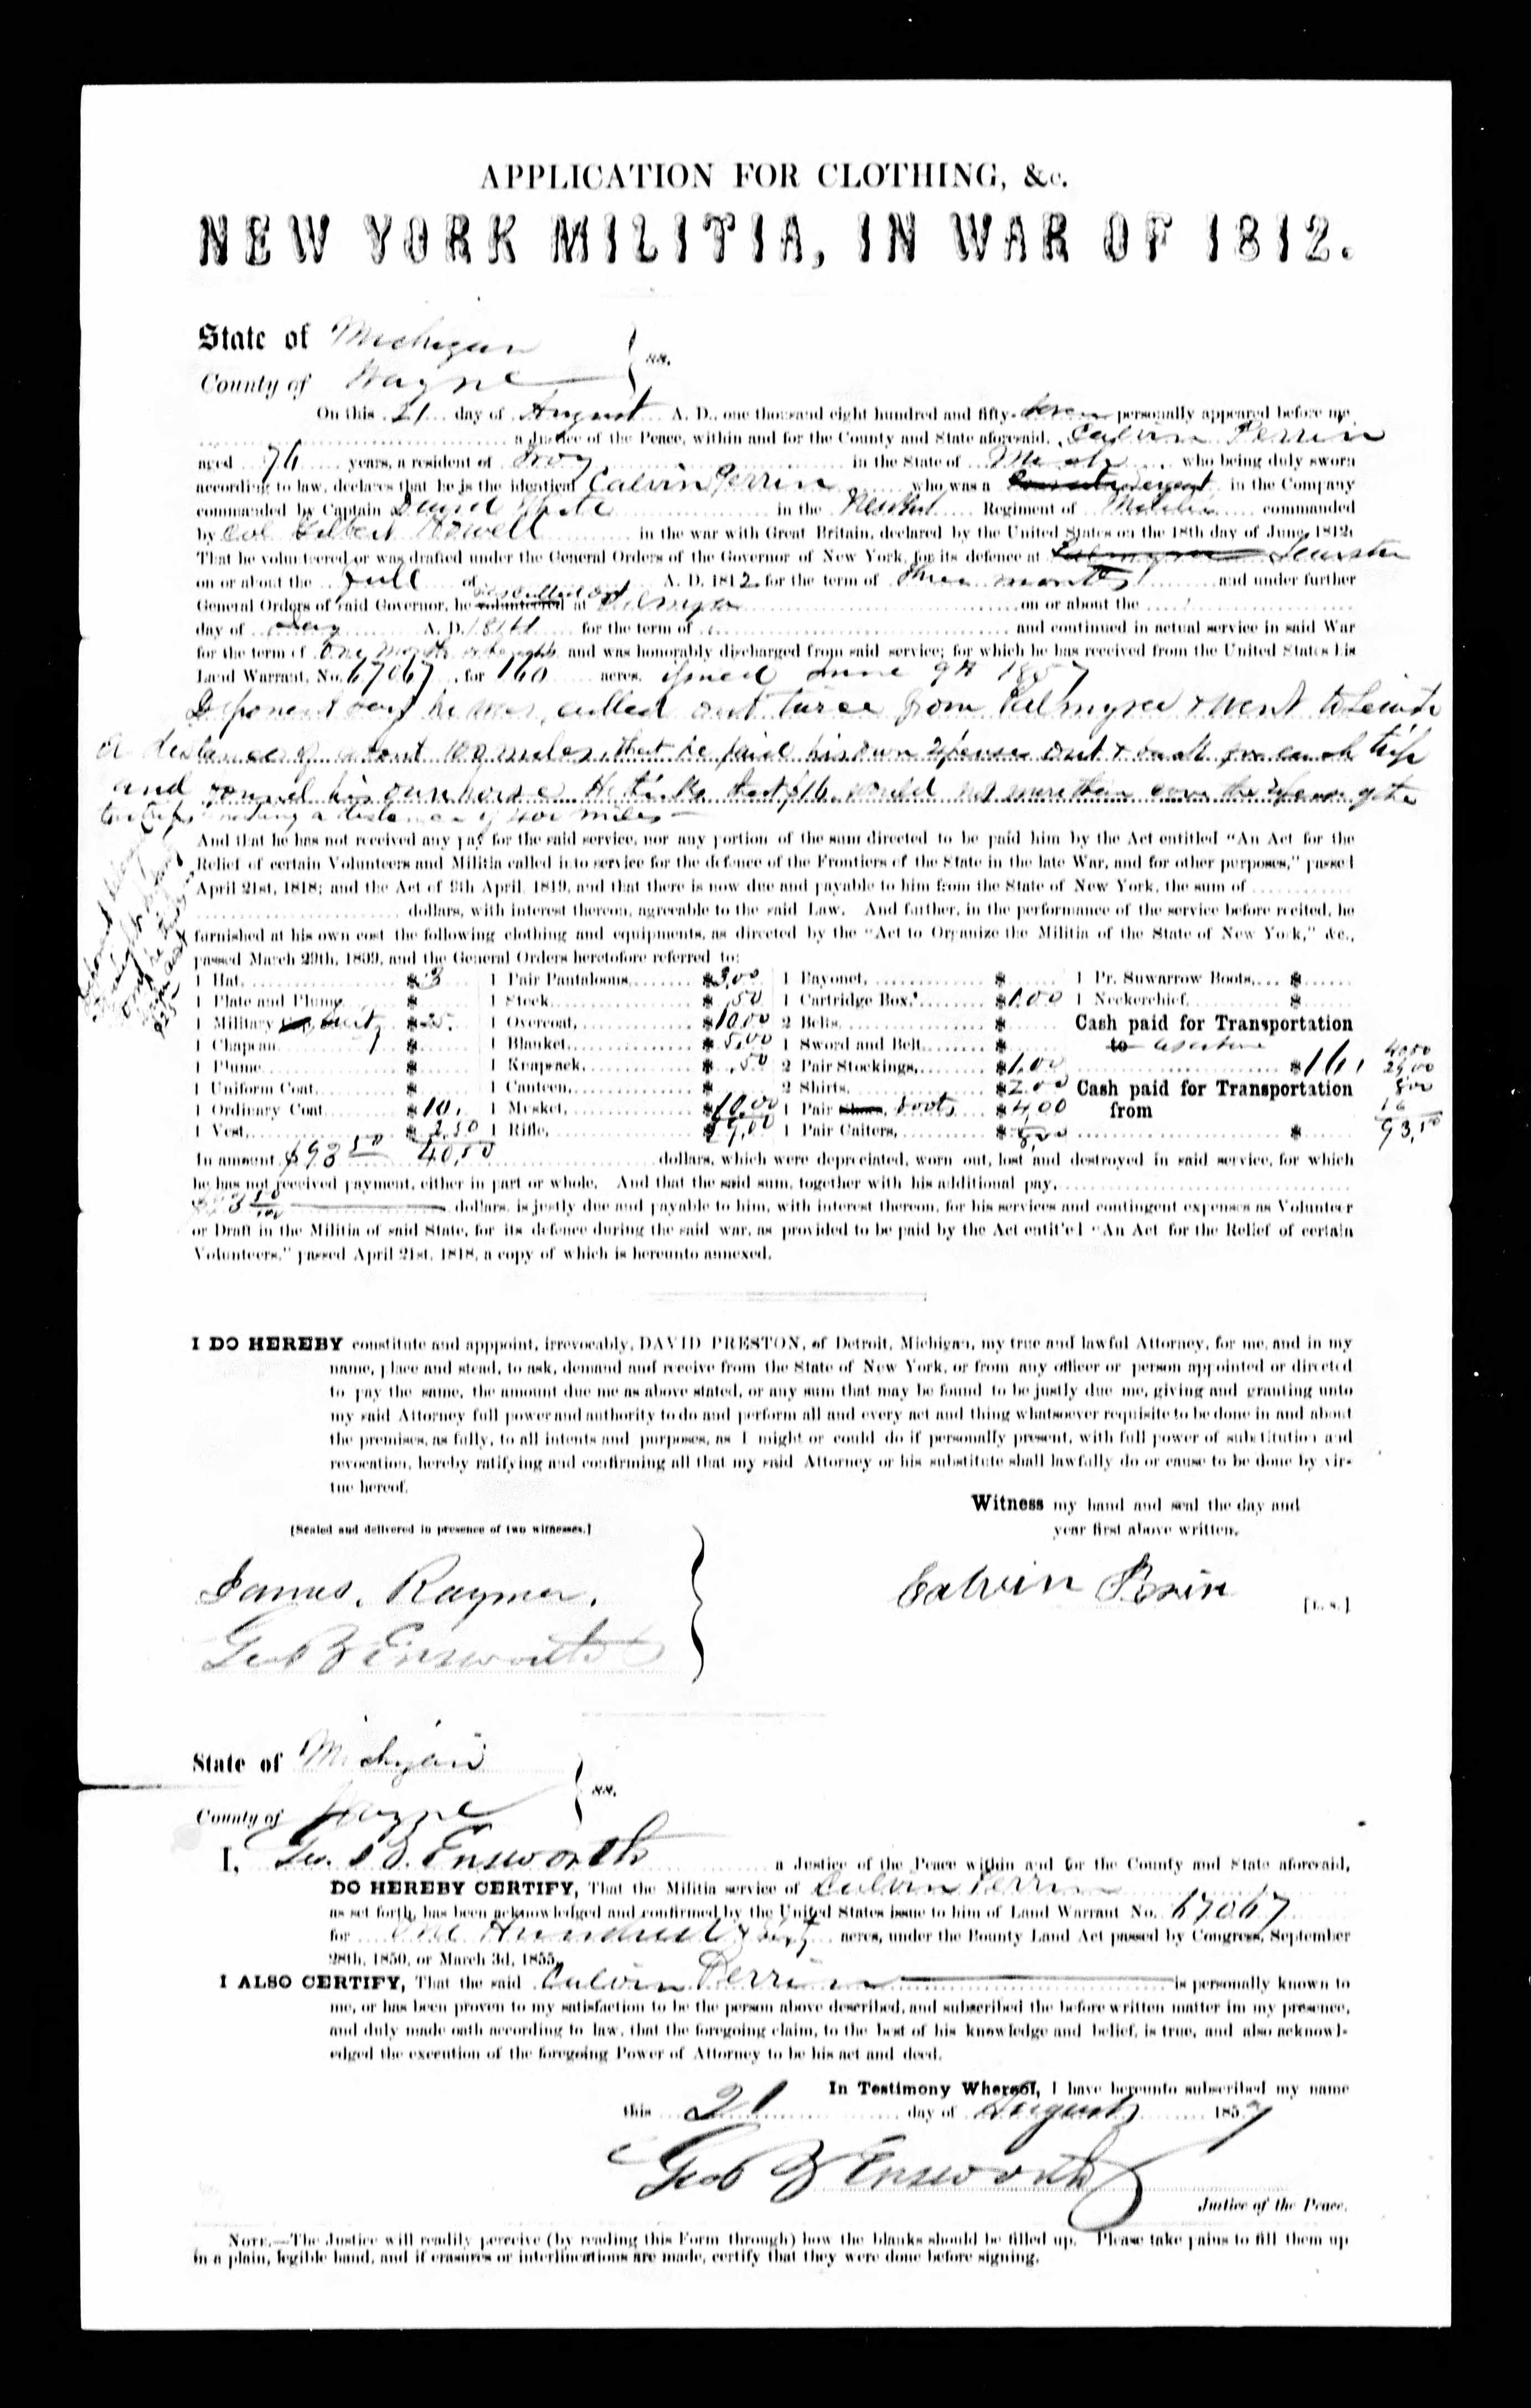 APPLICATION FOR CLOTHING, &c.
NEW YORK MILITIA, IN WAR OF 1812.
State of Michigan
County of Wayne } ss.
On this 21 day of August A. D., one thousand eight hundred and fifty-seven personally appeared before me
a Justice of the Peace, within and for the County and State aforesaid, Calvin Perrin
aged 76 years, a resident of Troy in the State of Mich who being duly sworn
according to law, declares that he is the identical Calvin Perrin who was a Sergent in the Company
commanded by Captain David White in the Regiment of Militia commanded
by Col Gilbert Howell in the war with Great Britain, declared by the United States on the 18th day of June, 1812:
That he volunteered or was drafted under the General Orders of the Governor of New York, for its defence at
on or about the full of A. D. 1812 for the term of three months and under further
General Orders of said Governor, he volunteered was called out at Palmyra on or about the
day of A. D. 181 for the term of and continued in actual service in said War
for the term of One month and was honorably discharged from said service; for which he has received from the United States his
Land Warrant, No. 67067, for 160 acres, issued June 9th 1857
Deponent says he was called out twice from Palmyra & went to
a distance of about 100 miles, that he paid his own expenses out & back for each trip
and found his own horse. He thinks that $16 would not more than cover the expenses of the
two trips making a distance of 400 miles
And that he has not received any pay for the said service, nor any portion of the sum directed to be paid him by the Act entitled "An Act for the
Relief of certain Volunteers and Militia called into service for the defence of the Frontiers of the State in the late War, and for other purposes," passed
April 21st, 1818; and the Act of 9th April, 1819, and that there is now due and payable to him from the State of New York, the sum of
dollars, with interest thereon, agreeable to the said Law. And farther, in the performance of the service before recited, he
furnished at his own cost the following clothing and equipments, as directed by the "Act to Organize the Militia of the State of New York," &c.,
passed March 29th, 1809, and the General Orders heretofore referred to:
1 Hat, $3 1 Pair Pantaloons, $3,00 1 Bayonet, $ 1 Pr. Suwarrow Boots, $
1 Plate and Plume, 1 Stock, $ ,50 1 Cartridge Box, $1.00 1 Neckerchief, $
1 Military Suit, $25. 1 Overcoat, $10,00 2 Belts, $ Cash paid for Transportation
1 Chapeau, $ 1 Blanket, $5,00 1 Sword and Belt, $ to
1 Plume, $ 1 Knapsack, $ ,50 2 Pair Stockings, $1,00 $16,
1 Uniform Coat, $ 1 Canteen, $ 2 Shirts, $2.00 Cash paid for Transportation
1 Ordinary Coat $10. 1 Musket, $10,00 1 Pair Shoes, boots $4,00 from
1 Vest, $2.50 1 Rifle, $29,00 1 Pair Gaiters, $8,00 $
40,50
29,00
8,00
16
93,50
In amount $93 50 40,50 dollars, which were depreciated, worn out, lost and destroyed in said service, for which
he has not received payment, either in part or whole. And that the said sum, together with his additional pay,
$93 50/100 dollars, is jestly due and payable to him, with interest thereon, for his services and contingent expenses as Volunteer
or Draft in the Militia of said State, for its defence during the said war, as provided to be paid by the Act entitled "An Act for the Relief of certain
Volunteers," passed April 21st, 1818, a copy of which is hereunto annexed.
I DO HEREBY constitute and apppoint, irrevocably, DAVID PRESTON, of Detroit, Michigan, my true and lawful Attorney, for me, and in my
name, place and stead, to ask, demand and receive from the State of New York, or from any officer or person appointed or directed
to pay the same, the amount due me as above stated, or any sum that may be found to be justly due me, giving and granting unto
my said Attorney full power and authority to do and perform all and every act and thing whatsoever requisite to be done in and about
the premises, as fully, to all intents and purposes, as I might or could do if personally present, with full power of substitution and
revocation, hereby ratifying and confirming all that my said Attorney or his substitute shall lawfully do or cause to be done by vir-
tue hereof.
Witness my hand and seal the day and
year first above written.
[Sealed and delivered in presence of two witnesses.]
James, Raymer,
Calvin Perrin [L. S.]
Geo B Ensworth
State of Michigan
County of Wayne } ss.
I, Geo. B. Ensworth a Justice of the Peace within and for the County and State aforesaid,
DO HEREBY CERTIFY, That the Militia service of Calvin Perrin
as set forth, has been acknowledged and confirmed by the United States issue to him of Land Warrant No. 67067
for One Hundred & Sixty acres, under the Bounty Land Act passed by Congress, September
28th, 1850, or March 3d, 1855.
I ALSO CERTIFY, That the said Calvin Perrin is personally known to
me, or has been proven to my satisfaction to be the person above described, and subscribed the before written matter im my presence,
and duly made oath according to law, that the foregoing claim, to the best of his knowledge and belief, is true, and also acknowl-
edged the execution of the foregoing Power of Attorney to be his act and deed.
In Testimony Whereof, I have hereunto subscribed my name
this 21 day of August 1857
Geo B Ensworth
Justice of the Peace.
NOTE.—The Justice will readily perceive (by reading this Form through) how the blanks should be filled up. Please take pains to fill them up
in a plain, legible hand, and if erasures or interlineations are made, certify that they were done before signing.